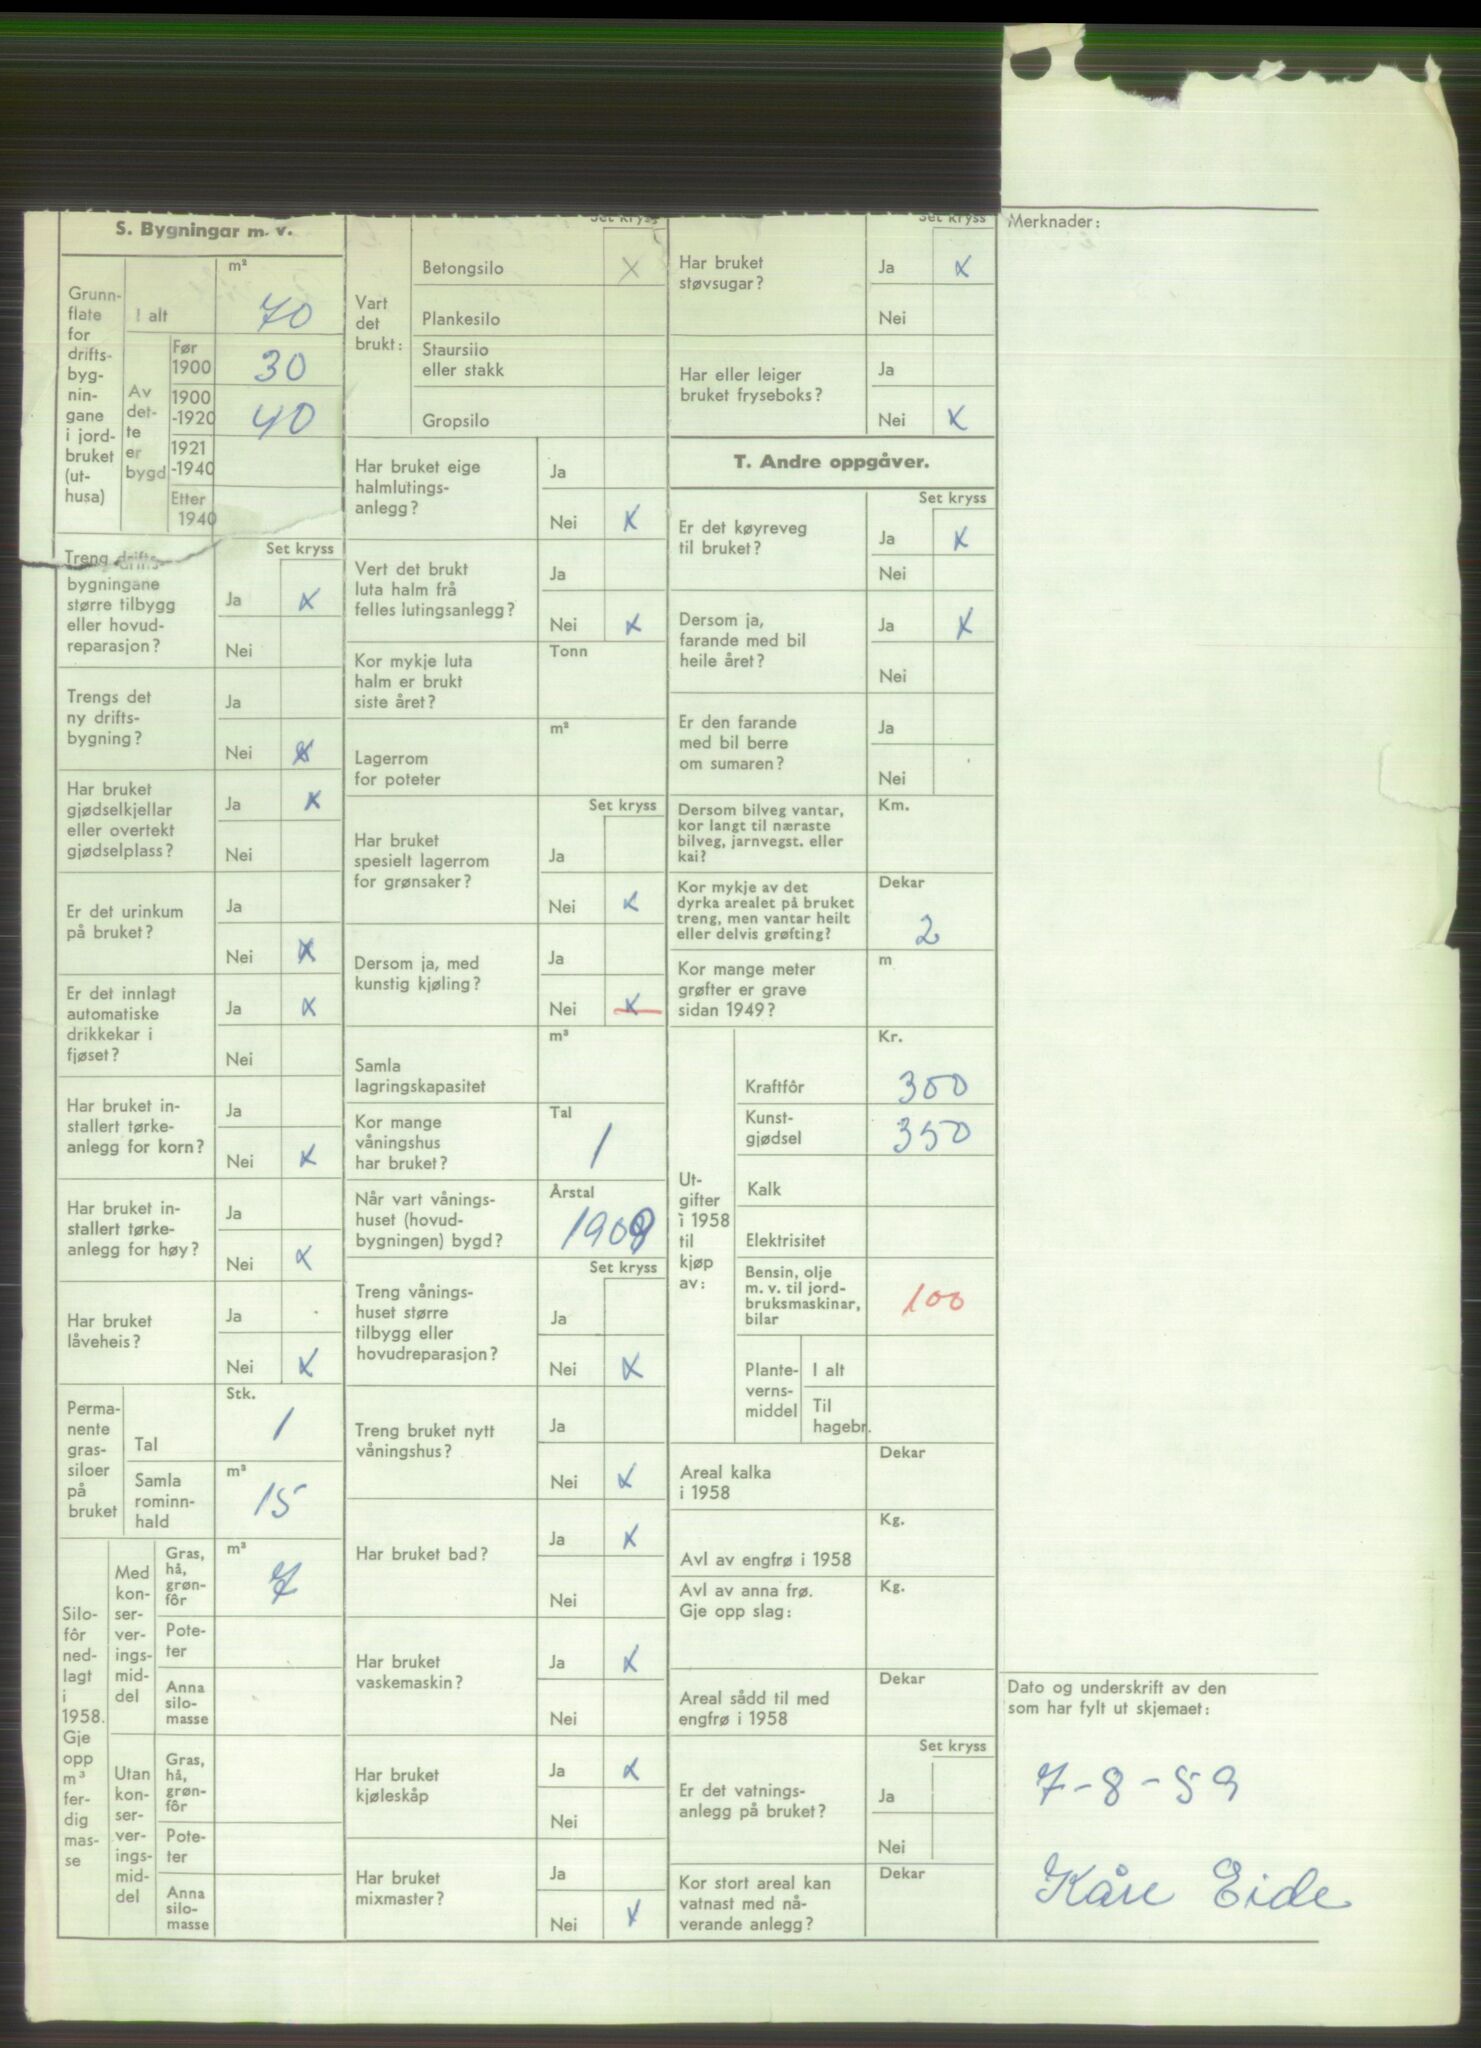 S. Bygningar m. v.
Grunn-
flate
for
drifts-
byg-
nin-
gane
i jord-
bruket
(ut-
husa)
I alt
m²
70
Av
det-
te
er
bygd
Før
1900
30
1900
-1920
40
1921
-1940
Etter
1940
Set kryss
Treng drifts-
bygningane
større tilbygg
eller hovud-
reparasjon?
Ja x
Nei
Trengs det
ny drifts-
bygning?
Ja
Nei x
Har bruket
gjødselkjellar
eller overtekt
gjødselplass?
Ja x
Nei
Er det urinkum
på bruket?
Ja
Nei x
Er det innlagt
automatiske
drikkekar i
fjøset?
Ja x
Nei
Har bruket in-
stallert tørke-
anlegg for korn?
Ja
Nei x
Har bruket in-
stallert tørke-
anlegg for høy?
Ja
Nei x
Har bruket
låveheis?
Ja
Nei x
Perma-
nente
gras-
siloer
på
bruket
Tal
Stk.
1
Samla
rominn-
hald
m³
15
Silo-
fôr
ned-
lagt
i
1958.
Gje
opp
m³
fer-
dig
mas-
se
Med
kon-
ser-
ver-
ings-
mid-
del
Gras,
hå,
grøn-
fôr
m³
7
Pote-
ter
Anna
silo-
masse
Utan
kon-
ser-
ver-
ings-
mid-
del
Gras,
hå,
grøn-
fôr
Pote-
ter
Anna
silo-
masse
Set kryss
Vart
det
brukt:
Betongsilo x
Plankesilo
Staursilo
eller stakk
Gropsilo
Har bruket eige
halmlutings-
anlegg?
Ja
Nei x
Vert det brukt
luta halm frå
felles lutingsanlegg?
Ja
Nei x
Kor mykje luta
halm er brukt
siste året?
Tonn
Lagerrom
for poteter
m²
Set kryss
Har bruket
spesielt lagerrom
for grønsaker?
Ja
Nei x
Dersom ja, med
kunstig kjøling?
Ja
Nei x
Samla
lagringskapasitet
m³
Kor mange
våningshus
har bruket?
Tal
1
Når vart vånings-
huset (hovud-
bygningen) bygd?
Årstal
1909
Set kryss
Treng vånings-
huset større
tilbygg eller
hovudreparasjon?
Ja
Nei x
Treng bruket nytt
våningshus?
Ja
Nei x
Har bruket bad?
Ja x
Nei
Har bruket
vaskemaskin?
Ja x
Nei
Har bruket
kjøleskåp
Ja x
Nei
Har bruket
mixmaster?
Ja
Nei x
Set kryss
Har bruket
støvsugar?
Ja x
Nei
Har eller leiger
bruket fryseboks?
Ja
Nei x
T. Andre oppgåver.
Set kryss
Er det køyreveg
til bruket?
Ja x
Nei
Dersom ja,
farande med bil
heile året?
Ja x
Nei
Er den farande
med bil berre
om sumaren?
Ja
Nei
Dersom bilveg vantar,
kor langt til næraste
bilveg, jarnvegst. eller
kai?
Km.
Kor mykje av det
dyrka arealet på bruket
treng, men vantar heilt
eller delvis grøfting?
Dekar
2
Kor mange meter
grøfter er grave
sidan 1949?
m
Ut-
gifter
i 1958
til
kjøp
av:
Kr.
Kraftfôr 300
Kunst-
gjødsel 350
Kalk
Elektrisitet
Bensin, olje
m. v. til jord-
bruksmaskinar,
bilar
100
Plante-
verns-
middel
I alt
Til
hagebr.
Areal kalka
i 1958
Dekar
Avl av engfrø i 1958
Kg.
Avl av anna frø.
Gje opp slag:
Kg.
Areal sådd til med
engfrø i 1958
Dekar
Set kryss
Er det vatnings-
anlegg på bruket?
Ja
Nei
Kor stort areal kan
vatnast med nå-
verande anlegg?
Dekar
Merknader:
Dato og underskrift av den
som har fylt ut skjemaet:
7-8-59
Kåre Eide